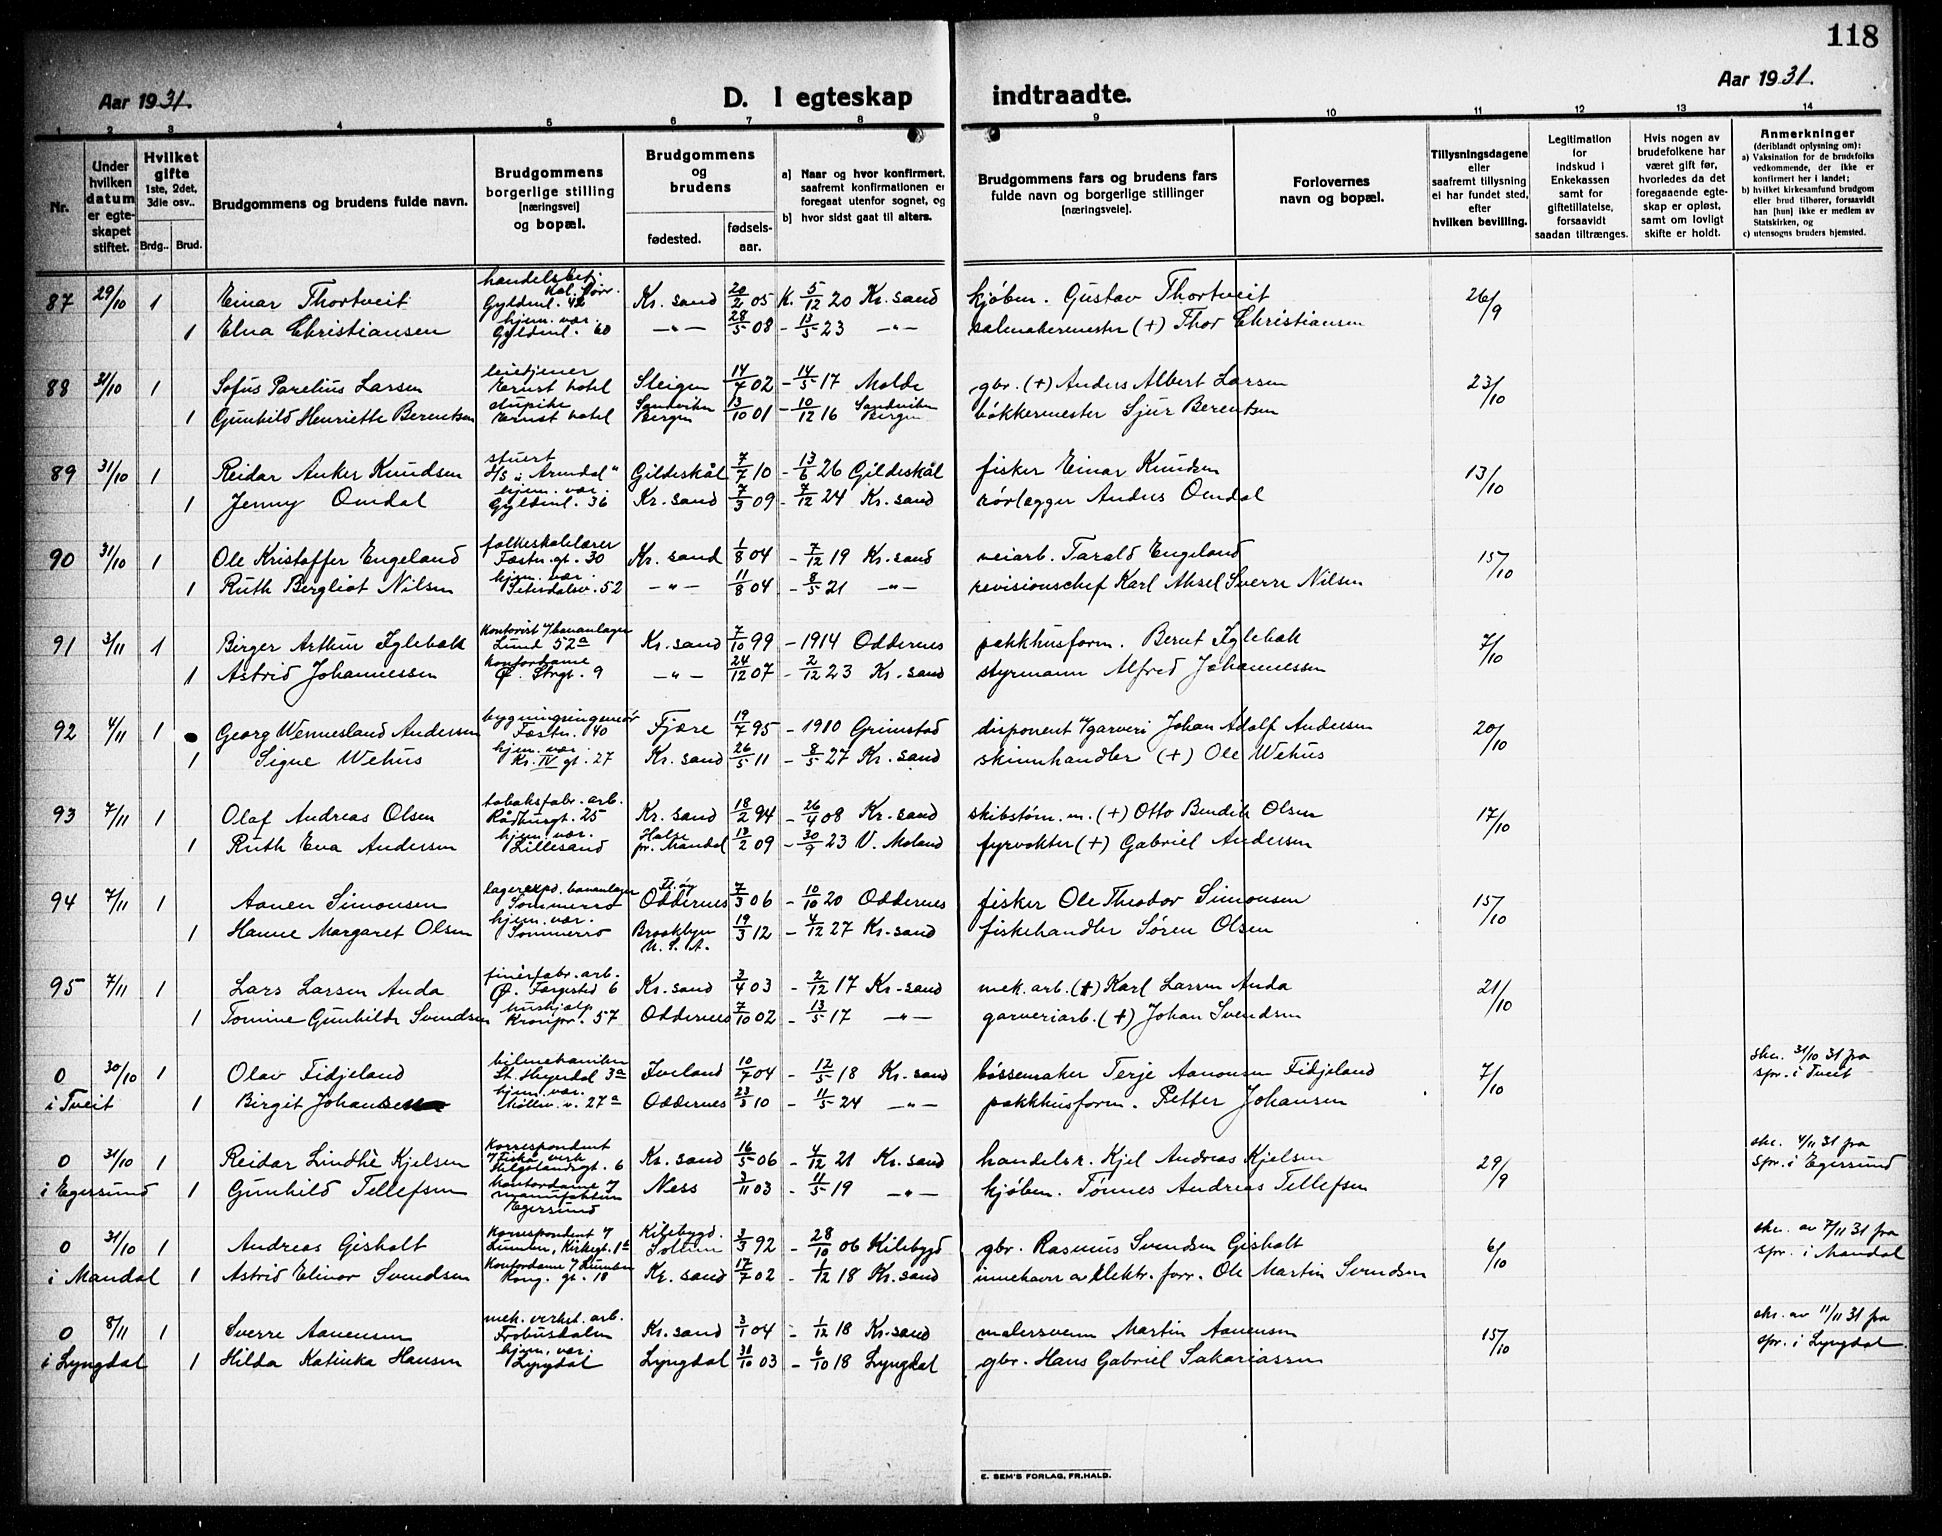 118
Aar 1931.
D. I egteskap
indtraadte.
Aar 1931.
1 2 3 4 5 6 7 8 9 10 11 12 13 14
Nr.
Under hvilken datum er egteskapet stiftet.
Hvilket gifte 1ste, 2det, 3die osv..
Brdg.. Brud.
Brudgommens og brudens fulde navn.
Brudgommens borgerlige stilling [næringsvei] og bopæl.
Brudgommens og brudens
fødested. fødselsaar.
a] Naar og hvor konfirmert, saafremt konfirmationen er foregaat utenfor sognet, og
b] hvor sidst gaat til alters.
Brudgommens fars og brudens fars fulde navn og borgerlige stillinger [næringsveie].
Forlovernes navn og bopæl.
Tillysningsdagene eller saafremt tillysning ei har fundet sted, efter hvilken bevilling.
Legitimation for indskud i Enkekassen samt for giftetillatelse, forsaavidt saadan tiltrænges.
Hvis nogen av brudefolkene har været gift før, hvorledes da det foregaaende egteskap er opløst, samt om lovligt skifte er holdt.
Anmerkninger (deriblandt oplysning om):
a) Vaksination for de brudefolks vedkommende, der ikke er konfirmert her i landet;
b) hvilket kirkesamfund brudgom eller brud tilhører, forsaavidt han [hun] ikke er medlem av Statskirken, og
c) utensogns bruders hjemsted.
87 29/10 1 Einar Thortveit Gyldenl. 42 Kr. sand 20/2 05 K. 5/12 20 Kr. sand kjøbm. Gustav Thortveit 26/9
1 Elna Christiansen hjem. vær. Gyldenl. 60 —"— 28/5 08 - 13/5 23 —"— salmakermester (+) Thor Christiansen
88 31/10 1 Sofus Parelius Larsen leietjener Ernst hotel Steigen 14/7 02 - 14/5 17 Molde gbr. (+) Anders Albert Larsen 23/10
1 Gunhild Henriette Berentsen stupike Ernst hotel Sandviken Bergen 13/10 01 - 10/12 16 Sandviken Bergen bøkkermester Sjur Berentsen
89 31/10 1 Reidar Anker Knudsen stuert D/S "Arendal" Gildeskål 7/7 10 - 13/6 26 Gildeskål fisker Einar Knudsen 13/10
1 Jenny Omdal hjem. vær. Gyldenl. 36 Kr. sand 7/3 09 - 7/12 24 Kr. sand rørlegger Anders Omdal
90 31/10 1 Ole Kristoffer Engeland folkeskolelærer Fæstn. gt. 30 Kr. sand 1/8 04 - 7/12 19 Kr. sand veiarb. Tarald Engeland 15/10
1 Ruth Bergliot Nilsen hjem. vær. Setesdalsv. 52 —"— 11/8 04 - 8/5 21 —"— revisionschef Karl Aksel Sverre Nilsen
91 3/11 1 Birger Arthur Iglebæk kontorist v/havnelager Lund 52a Kr. sand 7/10 99 - 1914 Oddernes pakkhusform. Bernt Iglebæk 7/10
1 Astrid Johannessen kontordame Ø. Strgt. 9 —"— 24/12 07 - 2/12 23 Kr. sand styrmann Alfred Johannessen
92 4/11 1 Georg Wennesland Andersen bygningsingeniør Fæstn. 40 Fjære 19/7 95 - 1910 Grimstad disponent v/garveri Johan Adolf Andersen 20/10
1 Signe Wehus hjem. vær. Kr. IV gt. 27 Kr. sand 26/5 11 - 8/5 27 Kr. sand skinnhandler (+) Ole Wehus
93 7/11 1 Olaf Andreas Olsen tobaksfabr. arb. Rådhusgt. 25 Kr. sand 18/2 94 - 26/4 08 Kr. sand skibstøm. m. (+) Otto Bendik Olsen 17/10
1 Ruth Eva Andersen hjem. vær. Lillesand Halse pr. Mandal 13/2 09 - 30/9 23 V. Moland fyrvokter (+) Gabriel Andersen
94 7/11 1 Aanen Simonsen Sommerro Fl. øy Oddernes 7/3 06 - 10/10 20 Oddernes fisker Ole Theodor Simonsen 15/10
1 Hanne Margaret Olsen hjem. vær. Sommerro Brooklyn U. S. A. 19/3 12 - 4/12 27 Kr. sand fiskehandler Søren Olsen
95 7/11 1 Lars Larsen Anda finérfabr. arb. Ø. Færgested 6 Kr. sand 3/4 03 - 2/12 17 Kr. sand mek. arb. (+) Karl Larsen Anda 21/10
1 Tomine Gunhilde Svendsen hushjælp Kronpr. 57 Oddernes 7/10 02 - 13/5 17 —"— garveriarb. (+) Johan Svendsen
0 30/10 1 Olav Fidjeland bilmekaniker St. Heyerdal 3a Iveland 10/7 04 - 12/5 18 Kr. sand bøssemaker Terje Aanonsen Fidjeland 7/10 skr. 31/10 31 fra spr. i Tveit
i Tveit 1 Birgit Johansen hjem. vær. 27a Oddernes 23/3 10 - 11/5 24 —"— pakkhusform. Petter Johansen
0 31/10 1 Reidar Lindhe Kjelsen korrespondent v/Fiskå verk Helgolandsgt. 6 Kr. sand 16/5 06 - 4/12 21 Kr. sand handelsr. Kjel Andreas Kjelsen 29/9 skr. 4/11 31 fra spr. i Egersund
i Egersund 1 Gunhild Tellefsen kontordame v/ manufaktur Egersund Næss 3/11 03 - 11/5 19 —"— kjøbm. Tønnes Andreas Tellefsen
0 31/10 1 Andreas Gisholt korrespondent v/ Lumber, Kirkegt. 1b Kilebygd. Solum 3/3 92 - 28/10 06 Kilebygd gbr. Rasmus Svendsen Gisholt 6/10 skr. av 7/11 31 fra spr. i Mandal
i Mandal 1 Astrid Elinor Svendsen kontordame v/ Lumber Kong. gt. 18 Kr. sand 17/7 02 - 1/12 18 Kr. sand innehaver av elektr. forr. Ole Martin Svendsen
0 8/11 1 Sverre Aanensen mek. verkst. arb. Frobusdalen Kr. sand 3/1 04 - 1/12 18 Kr. sand malersvenn Martin Aanensen 15/10 skr. av 11/11 31 fra spr. i Lyngdal.
i Lyngdal 1 Hilda Katinka Hansen hjem. vær. Lyngdal Lyngdal 31/10 03 - 6/10 18 Lyngdal gbr. Hans Gabriel Sakariassen
E. SEM'S FORLAG, FR.HALD.